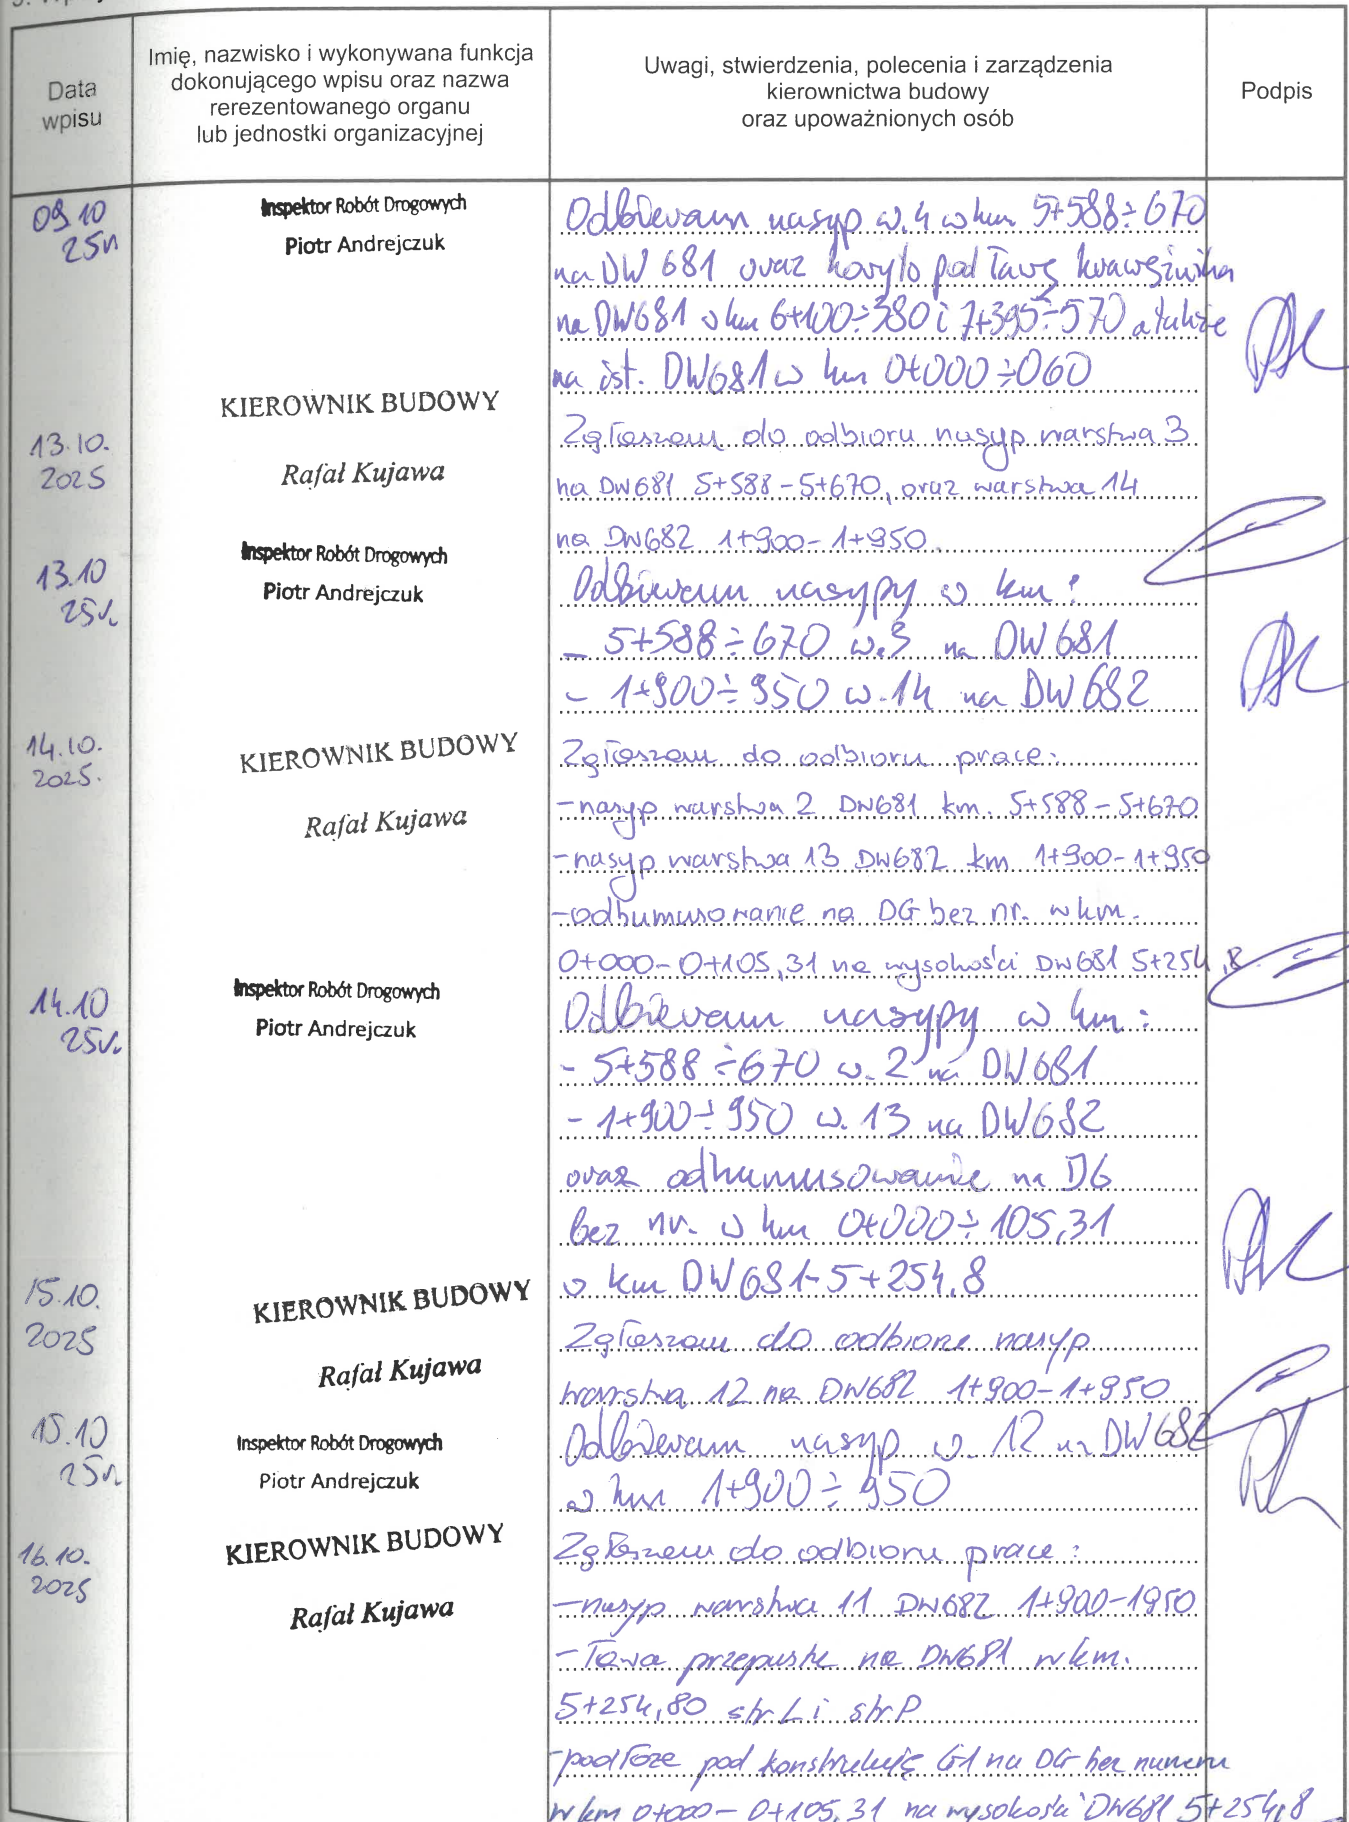 Data
wpisu
Imię, nazwisko i wykonywana funkcja
dokonującego wpisu oraz nazwa
rerezentowanego organu
lub jednostki organizacyjnej
Uwagi, stwierdzenia, polecenia i zarządzenia
kierownictwa budowy
oraz upoważnionych osób
Podpis
09.10
25r
Inspektor Robót Drogowych
Piotr Andrejczuk
Odbieram nasyp w.4 w km 5+588÷670
na DW 681 oraz koryto pod ławę krawężnika
na DW681 w km 6+100÷380 i 7+395÷570 a także
na ist. DW681 w km 0+000÷060
13.10.
2025
KIEROWNIK BUDOWY
Rafał Kujawa
Zgłaszam do odbioru nasyp warstwa 3
na DW681 5+588-5+670, oraz warstwa 14
na DW682 1+900-1+950
13.10
25r.
Inspektor Robót Drogowych
Piotr Andrejczuk
Odbieram nasypy w km:
- 5+588÷670 w.3 na DW 681
- 1+900÷950 w.14 na DW 682
14.10.
2025.
KIEROWNIK BUDOWY
Rafał Kujawa
Zgłaszam do odbioru prace:
- nasyp warstwa 2 DW681 km. 5+588-5+670
- nasyp warstwa 13 DW682 km 1+900-1+950
- odhumusowanie na DG bez nr. w km.
0+000-0+105,31 na wysokości DW681 5+254,8
14.10
25r.
Inspektor Robót Drogowych
Piotr Andrejczuk
Odbieram nasypy w km:
- 5+588÷670 w.2 na DW681
- 1+900÷950 w.13 na DW682
oraz odhumusowanie na DG
bez nr. w km 0+000÷105,31
w km DW681-5+254,8
15.10.
2025
KIEROWNIK BUDOWY
Rafał Kujawa
Zgłaszam do odbioru nasyp
warstwa 12 na DW682 1+900-1+950
15.10
25r
Inspektor Robót Drogowych
Piotr Andrejczuk
Odbieram nasyp w. 12 na DW 682
w km 1+900÷950
16.10.
2025
KIEROWNIK BUDOWY
Rafał Kujawa
Zgłaszam do odbioru prace:
- nasyp warstwa 11 DW682 1+900-1950
- Ława przepustu na DW681 w km.
5+254,80 str. L i str P
- podłoże pod konstrukcję G1 na DG bez numeru
w km 0+000-0+105,31 na wysokości DW681 5+254,8